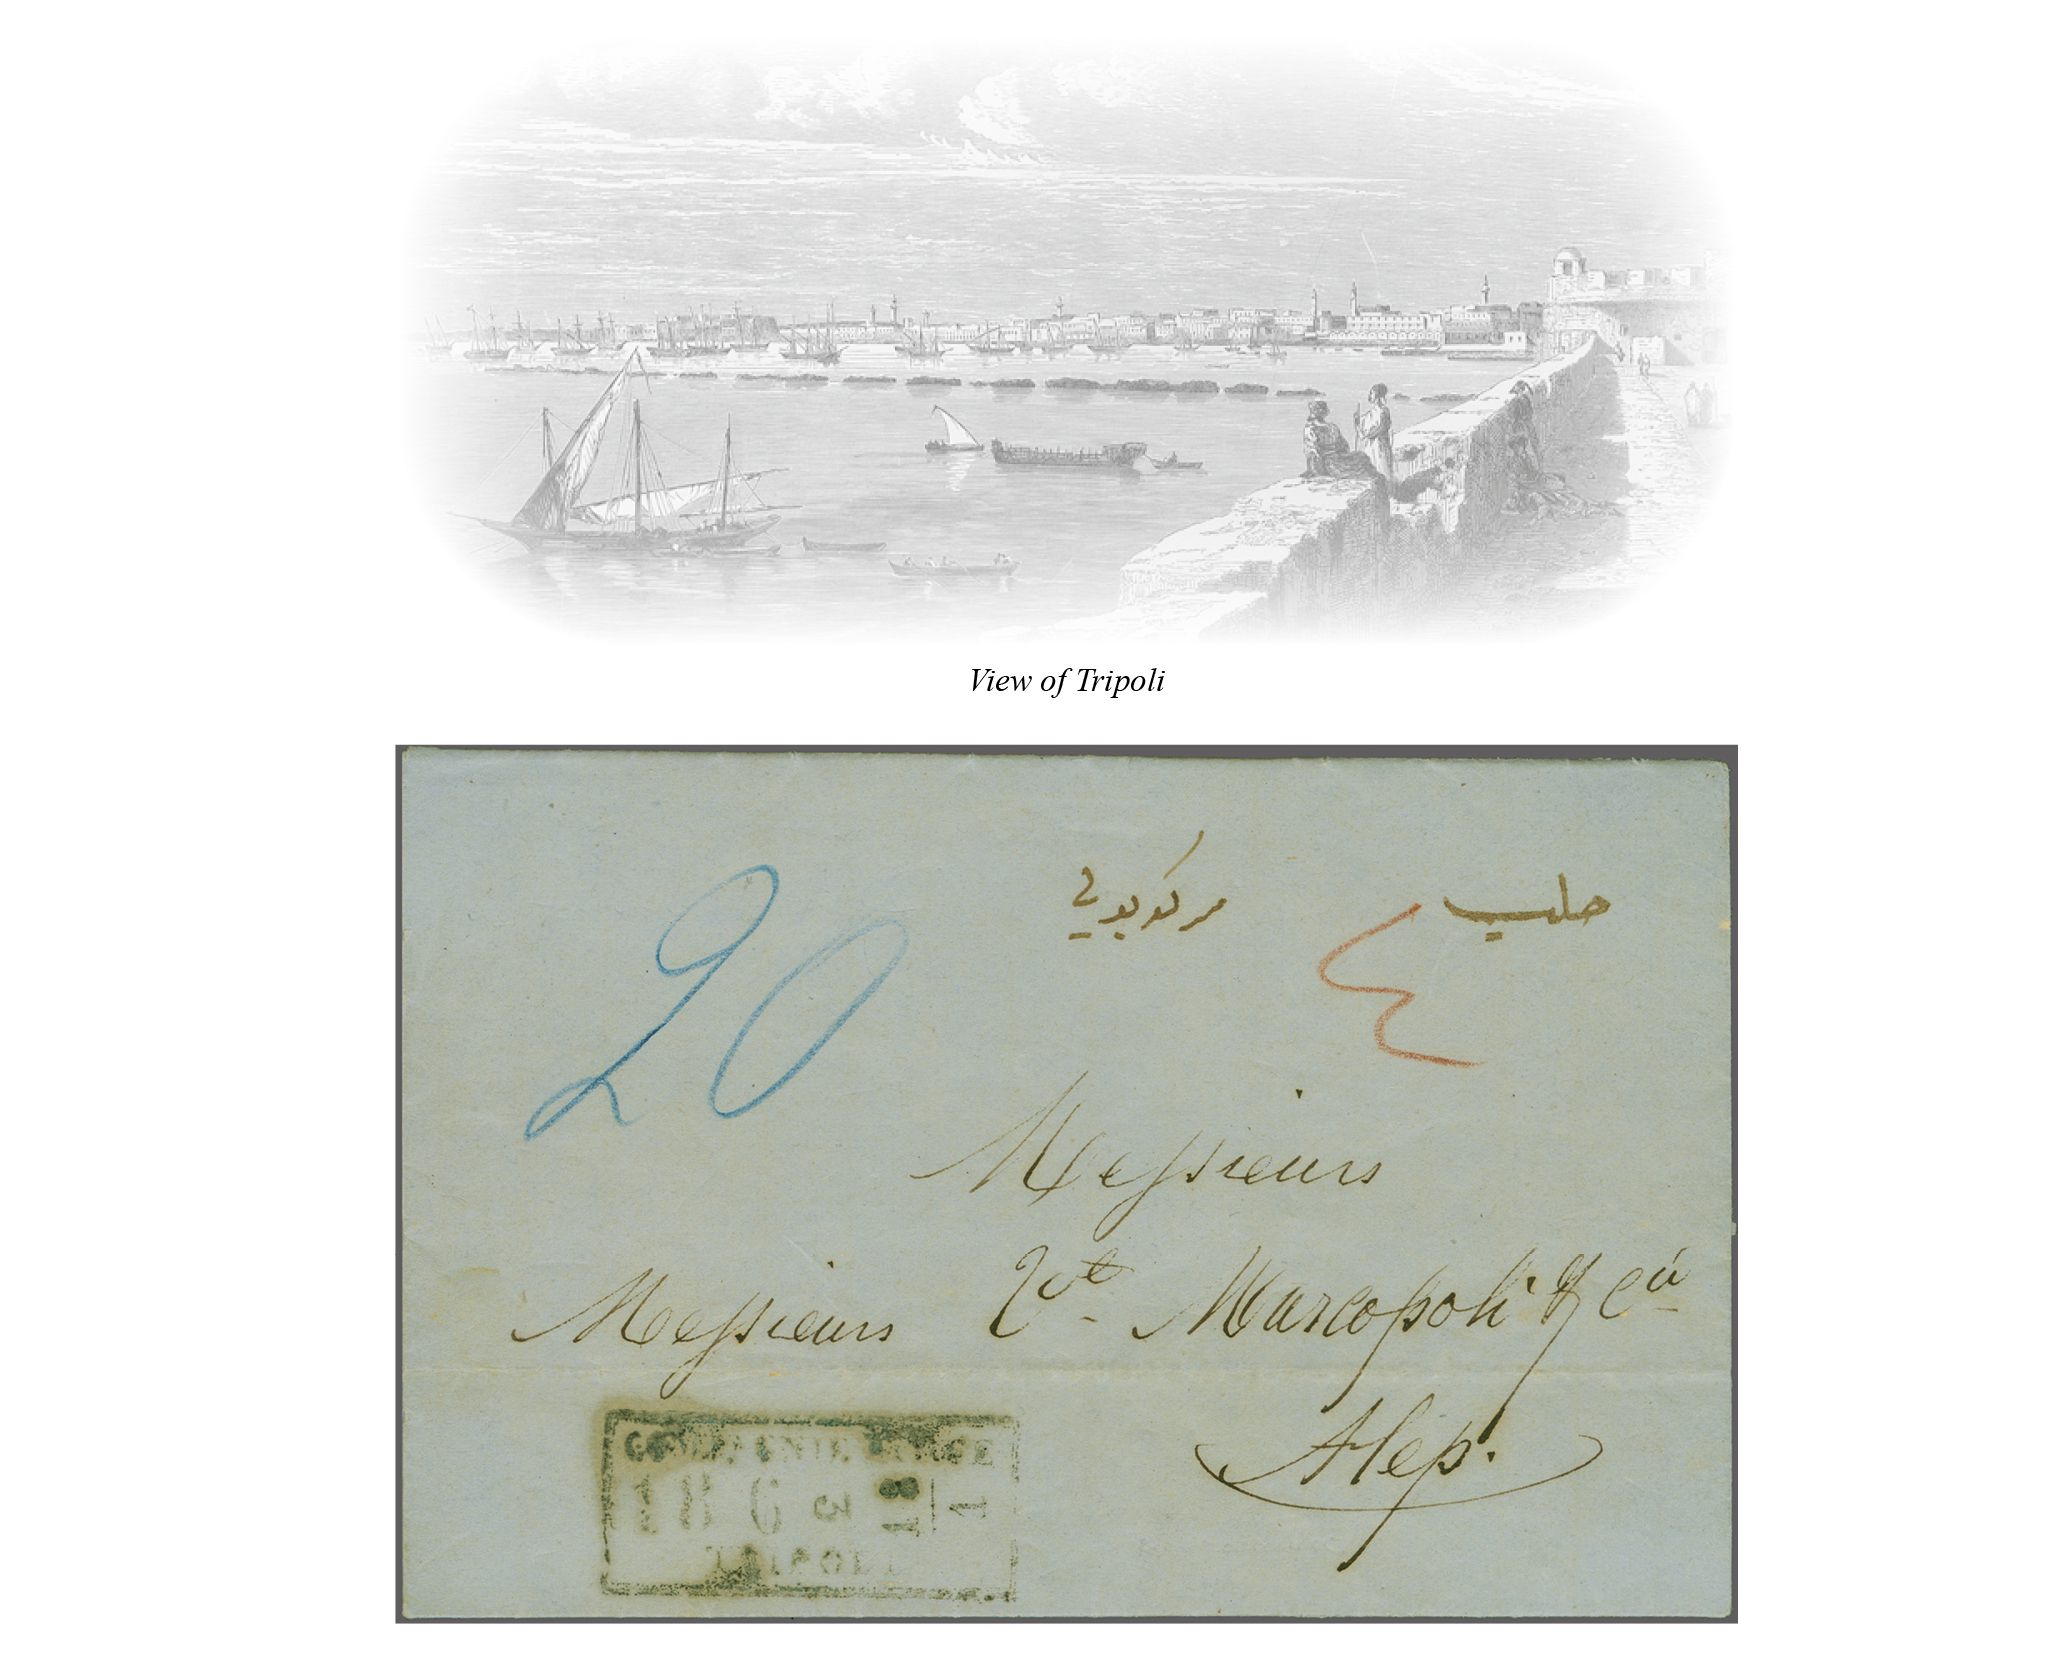 View of Tripoli
مركوبولي حلب
20 ٤
Messieurs
Messieurs Vt. Marcopoli & Cie
Alep.
COMPAGNIE RUSSE
1863 18/1
TRIPOLI